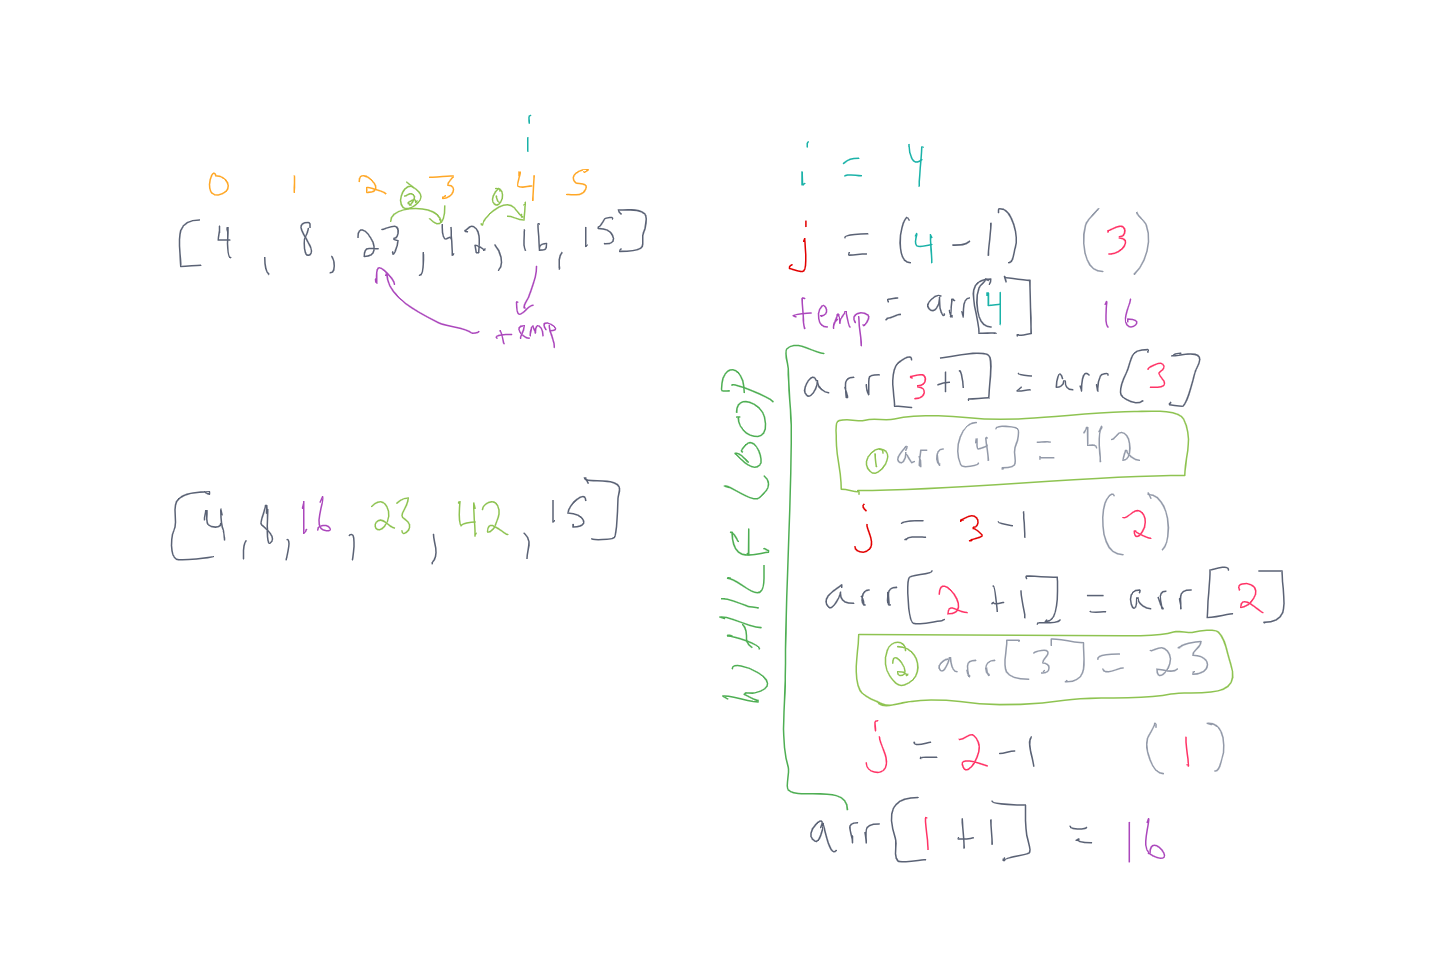 i
0 1 2 3 4 5
② ①
[4, 8, 23, 42, 16, 15]
temp
[4, 8, 16, 23, 42, 15]
i = 4
j = (4 - 1) (3)
temp = arr[4] 16
WHILE LOOP
arr[3+1] = arr[3]
① arr[4] = 42
j = 3 - 1 (2)
arr[2 + 1] = arr[2]
② arr[3] = 23
j = 2 - 1 (1)
arr[1 + 1] = 16